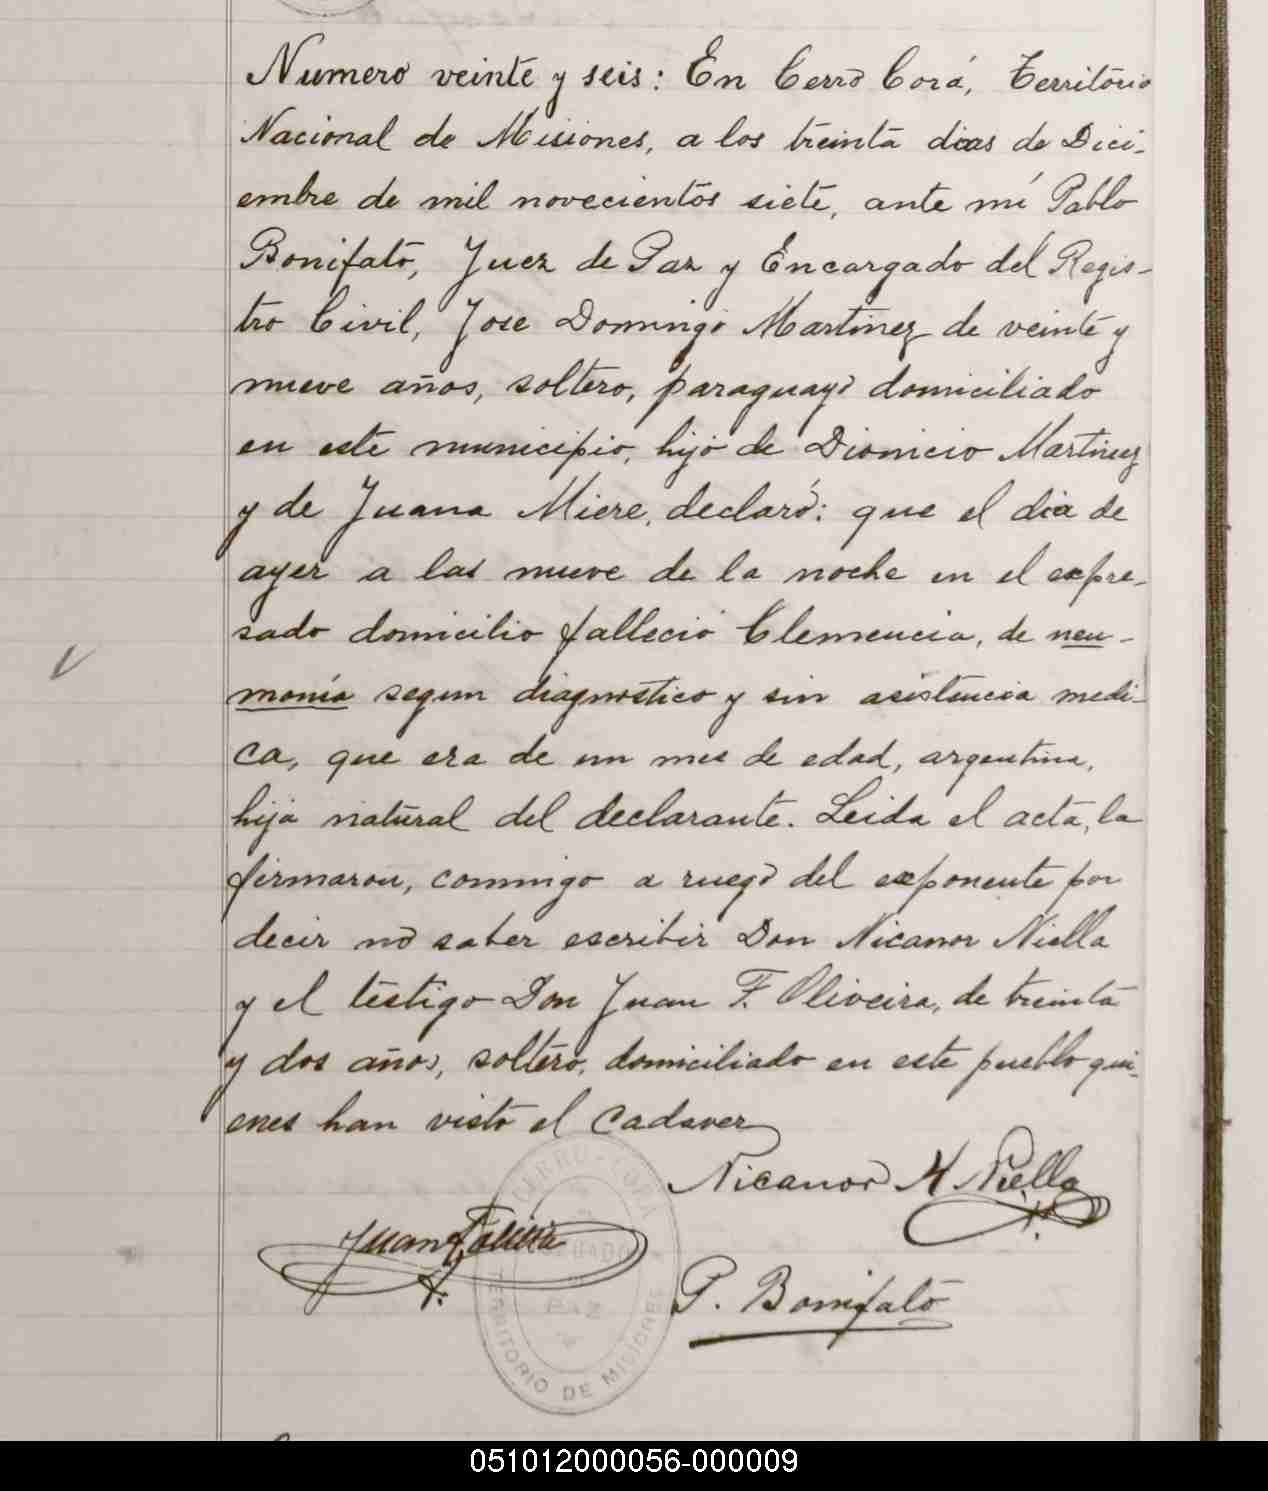 Numero veinte y seis: En Cerro Corá, Territorio
Nacional de Misiones, a los treinta dias de Dici-
embre de mil novecientos siete, ante mí Pablo
Bonifato, Juez de Paz y Encargado del Regis-
tro Civil, Jose Domingo Martinez de veinte y
nueve años, soltero, paraguayo domiciliado
en este municipio, hijo de Dionicio Martinez
y de Juana Miere, declaró: que el dia de
ayer a las nueve de la noche en el expre-
sado domicilio falleció Clemencia, de neu-
monía segun diagnostico y sin asistencia medi-
ca, que era de un mes de edad, argentina,
hija natural del declarante. Leida el acta, la
firmaron, conmigo a ruego del exponente por
decir no saber escribir Don Nicanor Niella
y el testigo Don Juan F. Oliveira, de treinta
y dos años, soltero, domiciliado en este pueblo qui-
enes han visto el cadaver
Nicanor H Niella
Juan F.
P. Bonifato
CERRO-CORÁ
JUZGADO
DE
PAZ
TERRITORIO DE MISIONES
051012000056-000009